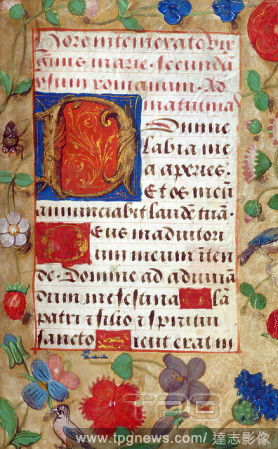 Hore intemerate vir
ginis marie secundu
usum romanum. Ad
matutina
Domine
labia me
a aperies.
Et os meu
annunciabit laude tua.
Deus in adiutori
um meum inten
de. Domine ad adiuua
dum me festina Gla
patri et filio et spiritui
sancto Sicut erat in
TPG
www.tpgnews.com / 達志影像